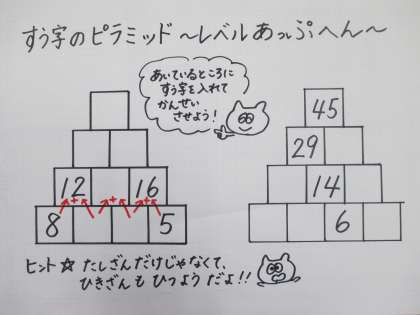 すう字のピラミッド～レベルあっぷへん～
あいているところに
すう字を入れて
かんせい
させよう!
45
29
12 16
14
+ + +
8 5
6
ヒント☆ たしざんだけじゃなくて、
ひきざんも ひつようだよ!!